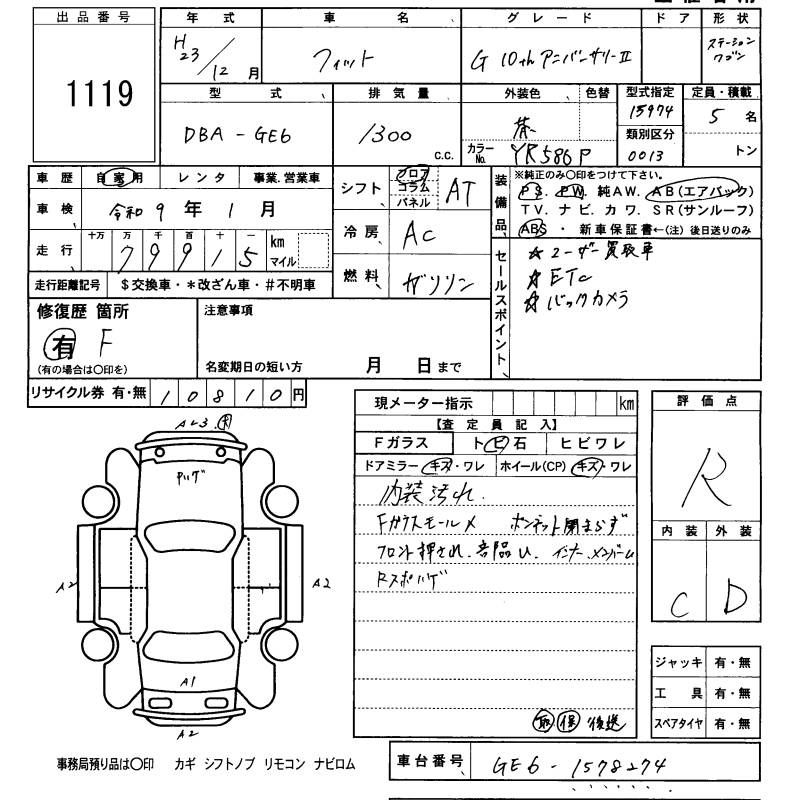 出品番号
1119
年式
H23/12月
車名
フィット
グレード
G 10th アニバーサリーII
ドア
形状
ステーション
ワゴン
型式
DBA-GE6
排気量
1300
c.c.
外装色
茶
色替
カラーNo.
YR586P
型式指定
15974
類別区分
0013
定員・積載
5名
トン
車歴
自家用
レンタ
事業.営業車
車検
令和9年1月
走行
十万 万 千 百 十 一
79915
km
マイル
走行距離記号
$交換車・*改ざん車・#不明車
シフト
フロア
コラム
パネル
AT
冷房
AC
燃料
ガソリン
装備品
※純正のみ〇印をつけて下さい。
PS. PW. 純AW. AB(エアバック)
TV. ナビ. カワ. SR(サンルーフ)
ABS・新車保証書←(注)後日送りのみ
セールスポイント
☆ユーザー買取車
☆ETC
☆バックカメラ
修復歴 箇所
有 F
(有の場合は〇印を)
注意事項
名変期日の短い方 月 日まで
リサイクル券 有・無
10810円
現メーター指示
km
【査定員記入】
Fガラス
トビ石
ヒビワレ
ドアミラー キズ・ワレ
ホイール(CP) キズ・ワレ
内装汚れ.
Fガラスモールメ ボンネット閉まらず
フロント押され. 部品ム. インナー.メンバーム
Rスポハゲ
取 保 後送
評価点
R
内装
C
外装
D
A2
Pハゲ
A2
A2
A1
A2
ジャッキ 有・無
工具 有・無
スペアタイヤ 有・無
事務局預り品は〇印 カギ シフトノブ リモコン ナビロム
車台番号
GE6-1578274